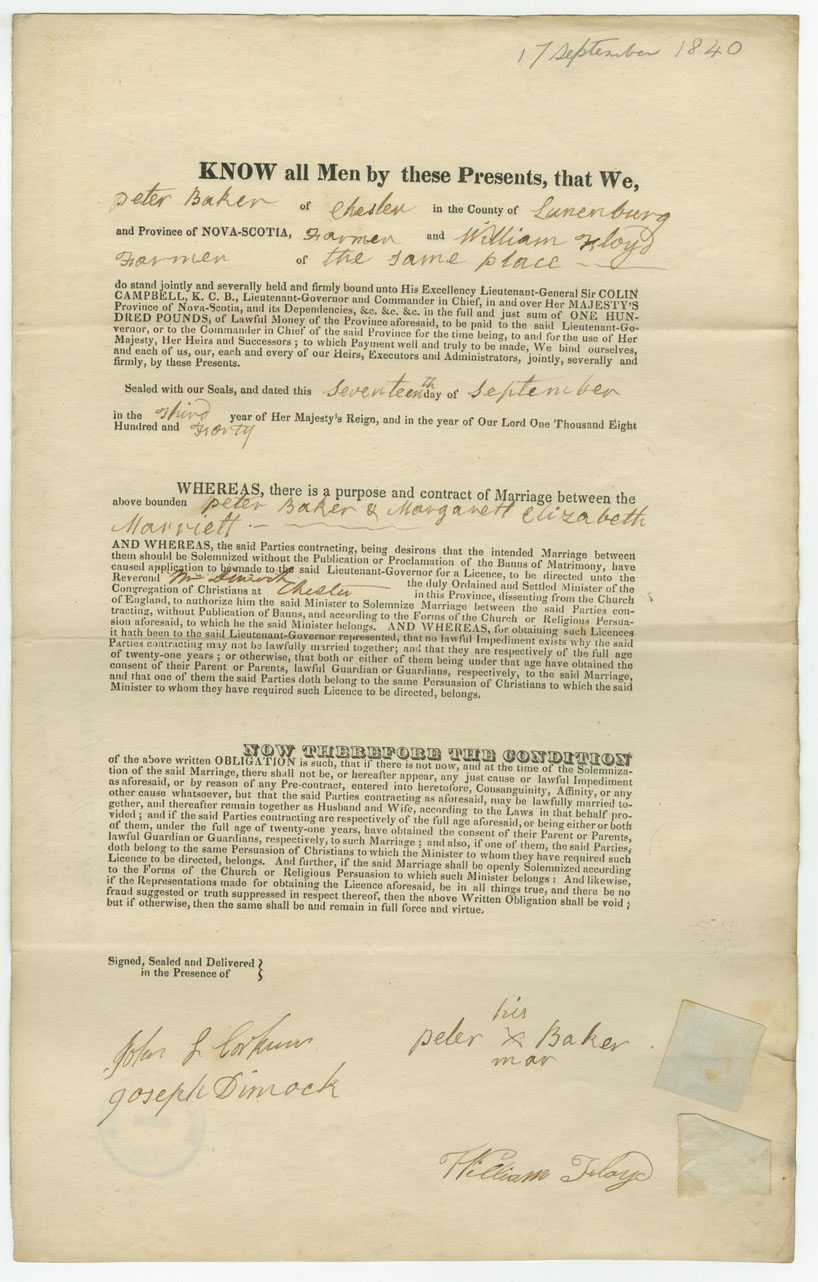 17 September 1840
KNOW all Men by these Presents, that We,
peter Baker of Chester in the County of Lunenburg
and Province of NOVA-SCOTIA, Farmer and William Floyd
Farmer of the same place
do stand jointly and severally held and firmly bound unto His Excellency Lieutenant-General Sir COLIN
CAMPBELL, K. C. B., Lieutenant-Governor and Commander in Chief, in and over Her MAJESTY'S
Province of Nova-Scotia, and its Dependencies, &c. &c. &c. in the full and just sum of ONE HUN-
DRED POUNDS, of Lawful Money of the Province aforesaid, to be paid to the said Lieutenant-Go-
vernor, or to the Commander in Chief of the said Province for the time being, to and for the use of Her
Majesty, Her Heirs and Successors; to which Payment well and truly to be made, We bind ourselves,
and each of us, our, each and every of our Heirs, Executors and Administrators, jointly, severally and
firmly, by these Presents.
Sealed with our Seals, and dated this Seventeenth day of September
in the Third year of Her Majesty's Reign, and in the year of Our Lord One Thousand Eight
Hundred and Forty
WHEREAS, there is a purpose and contract of Marriage between the
above bounden peter Baker & Margarett Elizabeth
Marriett
AND WHEREAS, the said Parties contracting, being desirous that the intended Marriage between
them should be Solemnized without the Publication or Proclamation of the Banns of Matrimony, have
caused application to be made to the said Lieutenant-Governor for a Licence, to be directed unto the
Reverend Mr Dimock the duly Ordained and Settled Minister of the
Congregation of Christians at Chester in this Province, dissenting from the Church
of England, to authorize him the said Minister to Solemnize Marriage between the said Parties con-
tracting, without Publication of Banns, and according to the Forms of the Church or Religious Persua-
sion aforesaid, to which he the said Minister belongs. AND WHEREAS, for obtaining such Licences
it hath been to the said Lieutenant-Governor represented, that no lawful Impediment exists why the said
Parties contracting may not be lawfully married together; and that they are respectively of the full age
of twenty-one years; or otherwise, that both or either of them being under that age have obtained the
consent of their Parent or Parents, lawful Guardian or Guardians, respectively, to the said Marriage,
and that one of them the said Parties doth belong to the same Persuasion of Christians to which the said
Minister to whom they have required such Licence to be directed, belongs.
NOW THEREFORE THE CONDITION
of the above written OBLIGATION is such, that if there is not now, and at the time of the Solemniza-
tion of the said Marriage, there shall not be, or hereafter appear, any just cause or lawful Impediment
as aforesaid, or by reason of any Pre-contract, entered into heretofore, Consanguinity, Affinity, or any
other cause whatsoever, but that the said Parties contracting as aforesaid, may be lawfully married to-
gether, and thereafter remain together as Husband and Wife, according to the Laws in that behalf pro-
vided; and if the said Parties contracting are respectively of the full age aforesaid, or being either or both
of them, under the full age of twenty-one years, have obtained the consent of their Parent or Parents,
lawful Guardian or Guardians, respectively, to such Marriage; and also, if one of them, the said Parties,
doth belong to the same Persuasion of Christians to which the Minister to whom they have required such
Licence to be directed, belongs. And further, if the said Marriage shall be openly Solemnized according
to the Forms of the Church or Religious Persuasion to which such Minister belongs: And likewise,
if the Representations made for obtaining the Licence aforesaid, be in all things true, and there be no
fraud suggested or truth suppressed in respect thereof, then the above Written Obligation shall be void;
but if otherwise, then the same shall be and remain in full force and virtue.
Signed, Sealed and Delivered
in the Presence of
his
John
peter X Baker
mar
Joseph Dimock
William Floyd